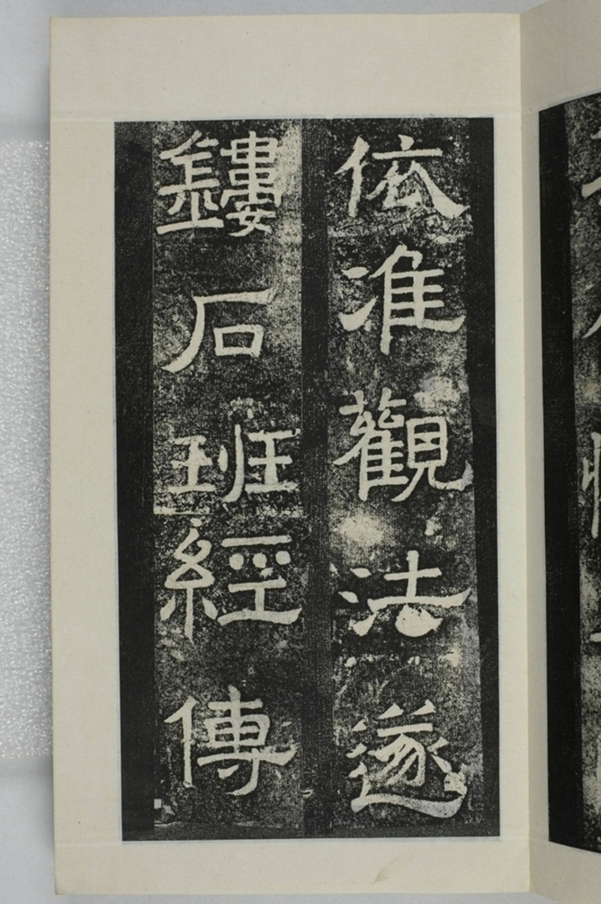 依准觀法遂
鏤石班經傳